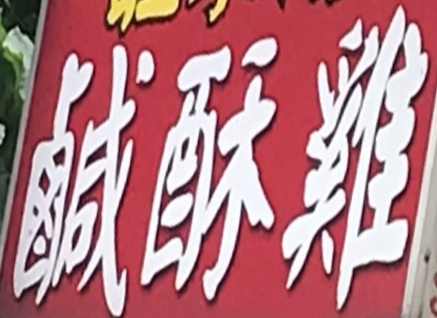 鹹酥雞